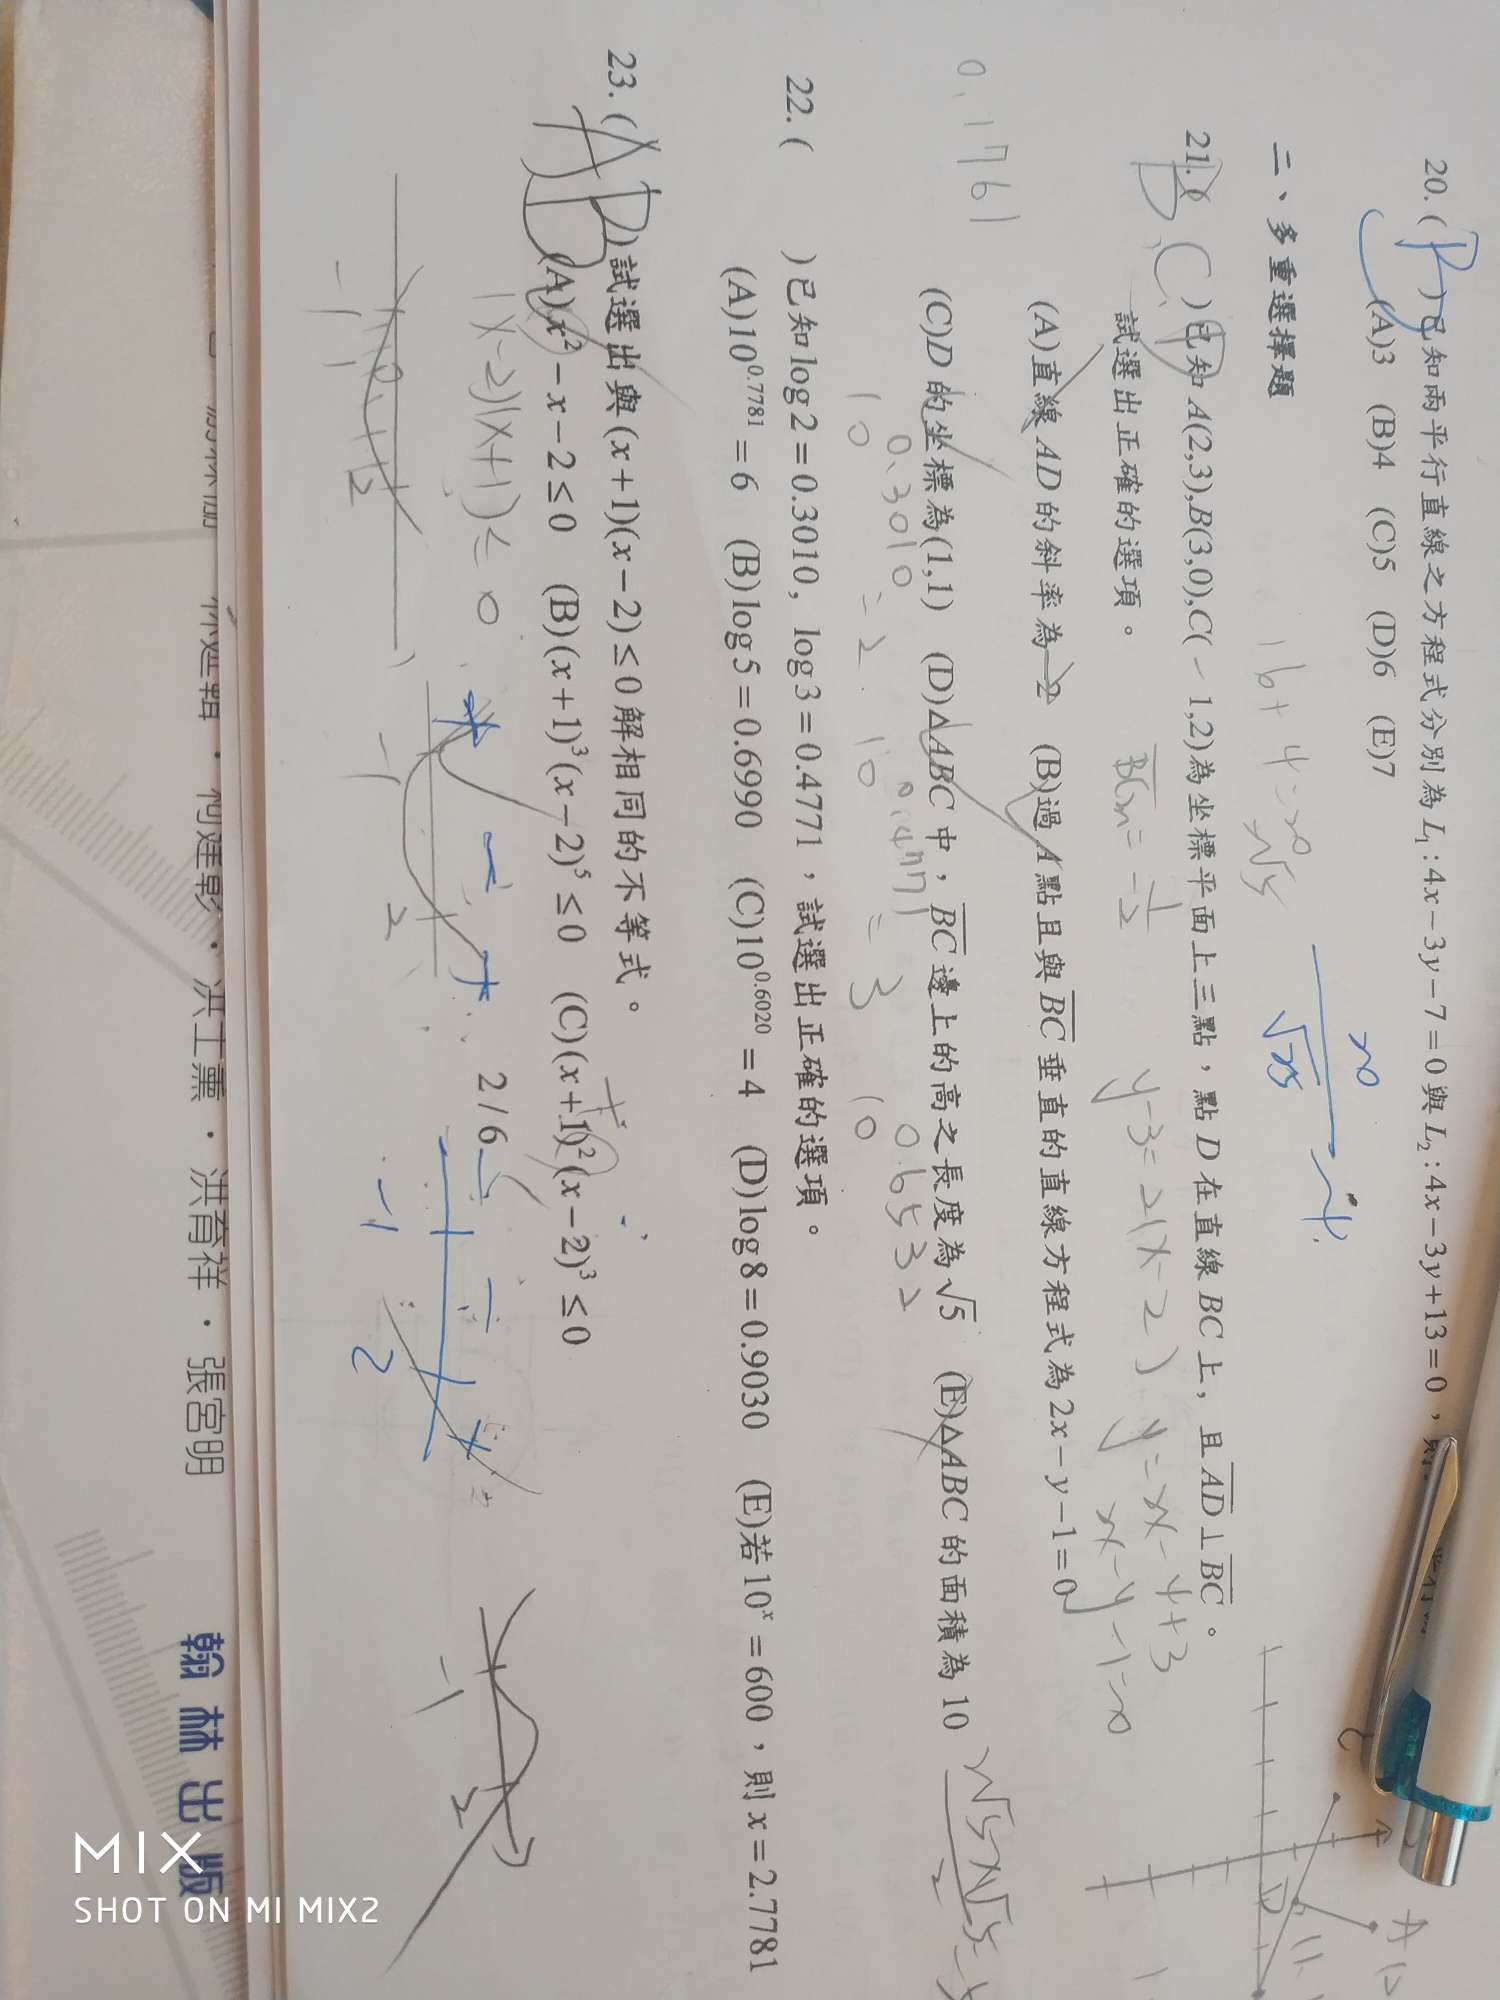 20. ( B ) 已知兩平行直線之方程式分別為 L₁:4x－3y－7＝0與 L₂:4x－3y+13＝0，則
(A)3 (B)4 (C)5 (D)6 (E)7
20
√25
=4
16+4=20
二、多重選擇題
21. ( B.C ) 已知 A(2,3),B(3,0),C(－1,2)為坐標平面上三點，點 D 在直線 BC 上，且 AD⊥BC。
試選出正確的選項。
BCm=-1/2
y-3=2(x-2) y=2x-4+3
2x-y-1=0
(A)直線 AD 的斜率為－2 (B)過 A 點且與 BC 垂直的直線方程式為 2x－y－1＝0
(C)D 的坐標為(1,1) (D)△ABC 中，BC 邊上的高之長度為√5 (E)△ABC 的面積為 10
0.1761
10^0.3010 = 2 10^0.4771 = 3 10^0.6532
22. ( ) 已知 log2＝0.3010，log3＝0.4771，試選出正確的選項。
(A)10^0.7781＝6 (B)log5＝0.6990 (C)10^0.6020＝4 (D)log8＝0.9030 (E)若10^x＝600，則 x＝2.7781
23. ( AB ) 試選出與(x+1)(x－2)≤0解相同的不等式。
(A)x²－x－2≤0 (B)(x+1)³(x－2)⁵≤0 (C)(x+1)²(x－2)³≤0
(x-2)(x+1)≤0
+ - +
-1 2
-1 2
-1 2
-1 2
2/6
洪士薰．洪育祥．張宮明
翰林出版
MIX
SHOT ON MI MIX2